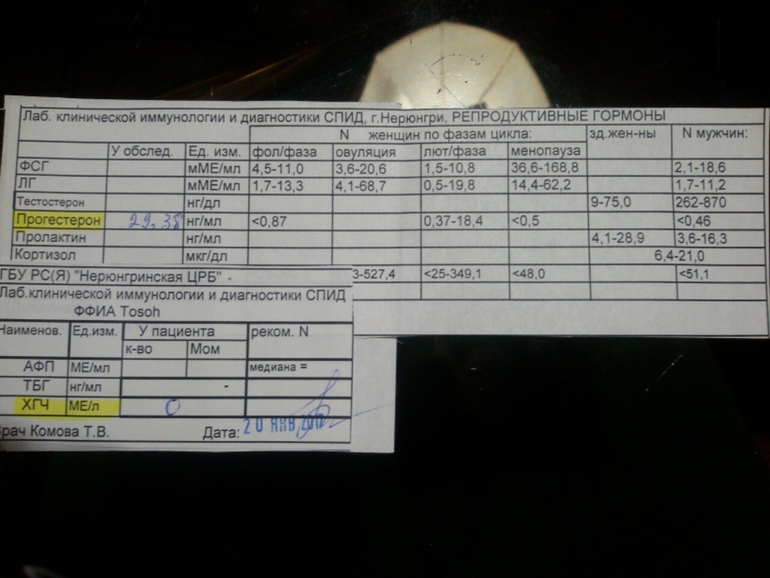 Лаб. клинической иммунологии и диагностики СПИД, г.Нерюнгри, РЕПРОДУКТИВНЫЕ ГОРМОНЫ
N женщин по фазам цикла: зд.жен-ны N мужчин:
У обслед. Ед. изм. фол/фаза овуляция лют/фаза менопауза
ФСГ мМЕ/мл 4,5-11,0 3,6-20,6 1,5-10,8 36,6-168,8 2,1-18,6
ЛГ мМЕ/мл 1,7-13,3 4,1-68,7 0,5-19,8 14,4-62,2 1,7-11,2
Тестостерон нг/дл 9-75,0 262-870
Прогестерон 29.38 нг/мл <0,87 0,37-18,4 <0,5 <0,46
Пролактин нг/мл 4,1-28,9 3,6-16,3
Кортизол мкг/дл 6,4-21,0
3-527,4 <25-349,1 <48,0 <51,1
ГБУ РС(Я) "Нерюнгринская ЦРБ" -
Лаб.клинической иммунологии и диагностики СПИД
ФФИА Tosoh
Наименов. Ед.изм. У пациента реком. N
к-во Мом
АФП МЕ/мл медиана =
ТБГ нг/мл -
ХГЧ МЕ/л 0
Врач Комова Т.В. Дата: 20 ЯНВ